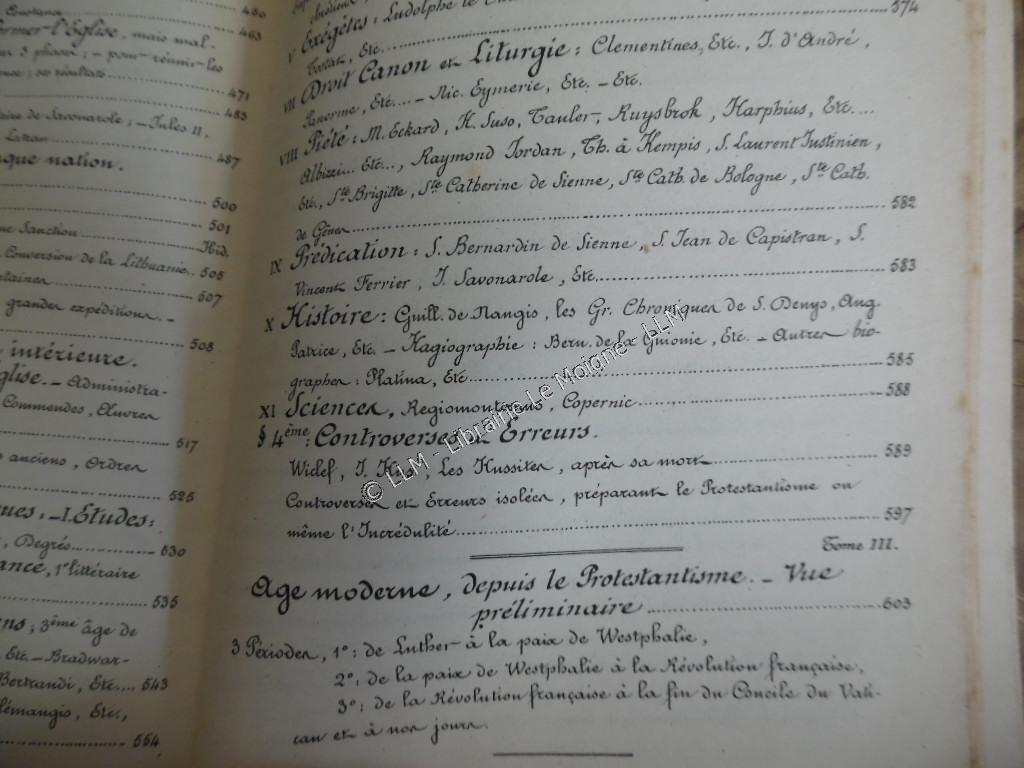 Constance 460
463
former l'Eglise, mais mal-
3 phases; - pour réunir les
; ses résultats 471
483
de Savonarole; - Jules II,
Latran 487
que nation.
500
501
Sanction Ibid.
Conversion de la Lithuanie 505
507
grandes expéditions. -
508
intérieure.
glise. - Administra-
Commendes, Œuvres
517
anciens, Ordres
525
ques: - I. Etudes:
, Degrés 530
ance, 1° littéraire
535
ens; 3ème âge de
Etc. - Bradwar-
Bertrandi, Etc.... 543
lémangis, Etc.,
554
V Exégètes: Ludolphe le
Tostat, Etc 574
VII Droit Canon et Liturgie: Clementines, Etc., J. d'André,
Panorme, Etc.... - Nic. Eymerie, Etc. - Etc.
VIII Piété: M. Eckard, H. Suso, Tauler, Ruysbrok, Harphius, Etc....
Albizzi... Etc..., Raymond Jordan, Th. à Kempis, S. Laurent Justinien,
Etc., Ste Brigitte, Ste Catherine de Sienne, Ste Cath. de Bologne, Ste Cath.
de Gênes 582
IX Prédication: S. Bernardin de Sienne, S. Jean de Capistran, S.
Vincent Ferrier, J. Savonarole, Etc. 583
X Histoire: Guill. de Nangis, les Gr. Chroniques de S. Denys, Aug
Patrice, Etc. - Hagiographie: Bern. de la Guionie, Etc. - Autres bio-
graphes: Platina, Etc 585
XI Sciences, Regiomontanus, Copernic 588
§ 4ème: Controverses et Erreurs.
Wiclef, J. Hus, Les Hussites, après sa mort 589
Controverses et Erreurs isolées, préparant le Protestantisme ou
même l'Incrédulité 597
Tome III.
Age moderne, depuis le Protestantisme. - Vue
préliminaire 603
3 Périodes, 1°: de Luther à la paix de Westphalie,
2°: de la paix de Westphalie à la Révolution française,
3°: de la Révolution française à la fin du Concile du Vati-
can et à nos jours.
© LLM - Librairie Le Moigne - LLM